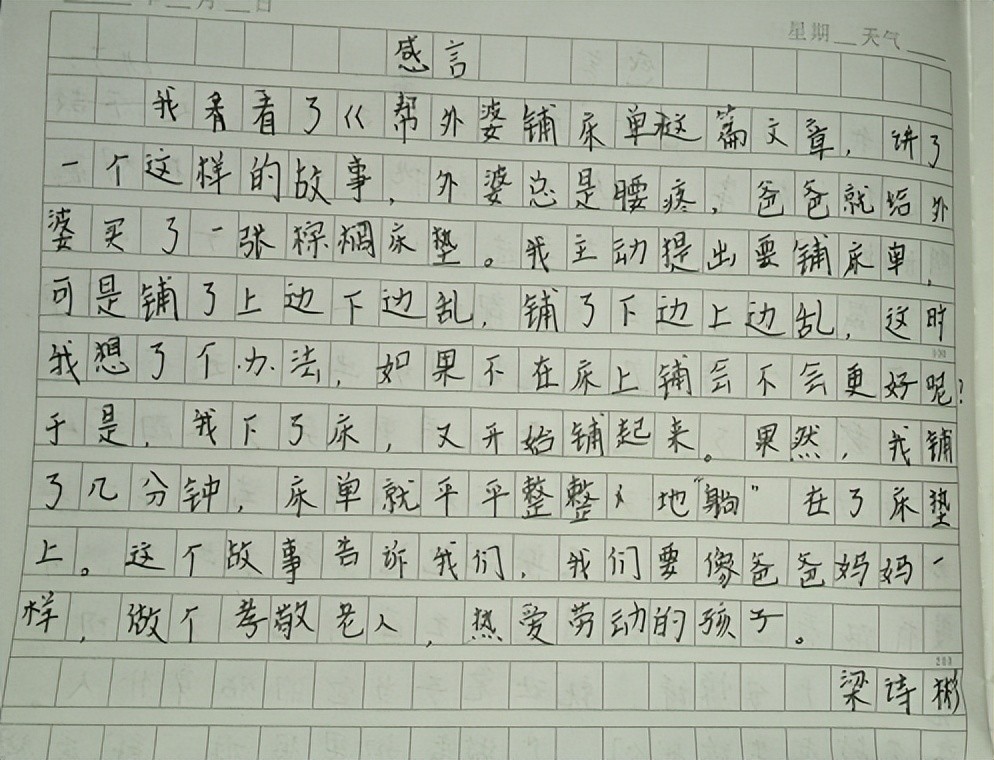 年 月 日
星期 天气
感言
我看看了《帮外婆铺床单这篇文章,讲了
一个这样的故事,外婆总是腰疼,爸爸就给外
婆买了一张棕榈床垫。我主动提出要铺床单,
可是铺了上边下边乱,铺了下边上边乱,这时
我想了个办法,如果不在床上铺会不会更好呢?
于是,我下了床,又开始铺起来。果然,我铺
了几分钟,床单就平平整整地"躺"在了床垫
上。这个故事告诉我们,我们要像爸爸妈妈一
样,做个孝敬老人,热爱劳动的孩子。
200
梁诗彬